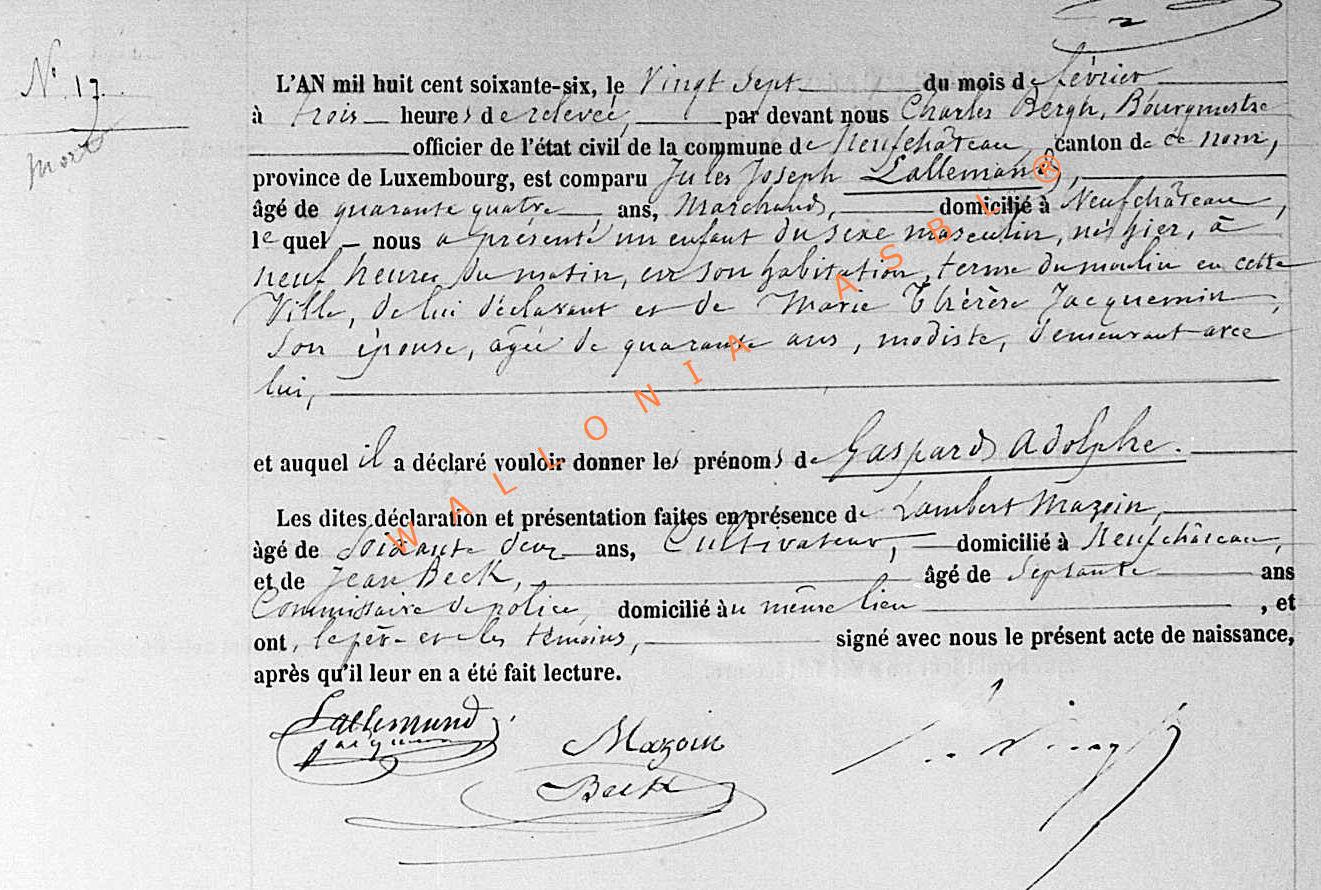 N.° 17
mort
L'AN mil huit cent soixante-six, le Vingt Sept du mois de février
à trois heures de relevée, par devant nous Charles Bergh, Bourgmestre
officier de l'état civil de la commune de Neufchâteau, canton de ce nom,
province de Luxembourg, est comparu Jules Joseph Lallemand,
âgé de quarante quatre ans, Marchand, domicilié à Neufchâteau,
lequel, nous a présenté un enfant du sexe masculin, né hier, à
neuf heures du matin, en son habitation, terme du moulin en cette
Ville, de lui déclarant et de Marie Thérèse Jacquemin,
Son épouse, âgée de quarante ans, modiste, demeurant avec
lui,
et auquel il a déclaré vouloir donner les prénoms de Gaspard Adolphe.
Les dites déclaration et présentation faites en présence de Lambert Mazoin,
âgé de Soixante deux ans, Cultivateur, domicilié à Neufchâteau,
et de Jean Beck, âgé de Septante ans
Commissaire de police, domicilié au même lieu, et
ont, le père et les témoins, signé avec nous le présent acte de naissance,
après qu'il leur en a été fait lecture.
Lallemand
Jacquemin
Mazoin
Beck
WALLONIA ASBL ®